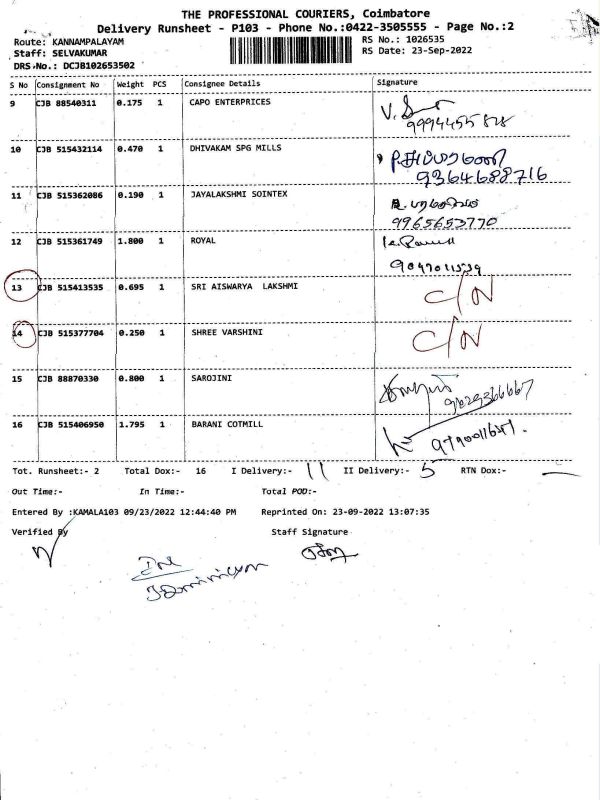 THE PROFESSIONAL COURIERS, Coimbatore
Delivery Runsheet - P103 - Phone No.:0422-3505555 - Page No.:2
Route: KANNAMPALAYAM RS No.: 1026535
Staff: SELVAKUMAR RS Date: 23-Sep-2022
DRS.No.: DCJB102653502
S No Consignment No Weight PCS Consignee Details Signature
9 CJB 88540311 0.175 1 CAPO ENTERPRICES
10 CJB 515432114 0.470 1 DHIVAKAM SPG MILLS
9364688716
11 CJB 515362086 0.190 1 JAYALAKSHMI SOINTEX
9965653770
12 CJB 515361749 1.800 1 ROYAL
13 CJB 515413535 0.695 1 SRI AISWARYA LAKSHMI C/N
14 CJB 515377704 0.250 1 SHREE VARSHINI C/N
15 CJB 88870330 0.800 1 SAROJINI
9629366667
16 CJB 515406950 1.795 1 BARANI COTMILL
Tot. Runsheet:- 2 Total Dox:- 16 I Delivery:- 11 II Delivery:- 5 RTN Dox:- —
Out Time:- In Time:- Total POD:-
Entered By :KAMALA103 09/23/2022 12:44:40 PM Reprinted On: 23-09-2022 13:07:35
Verified By Staff Signature